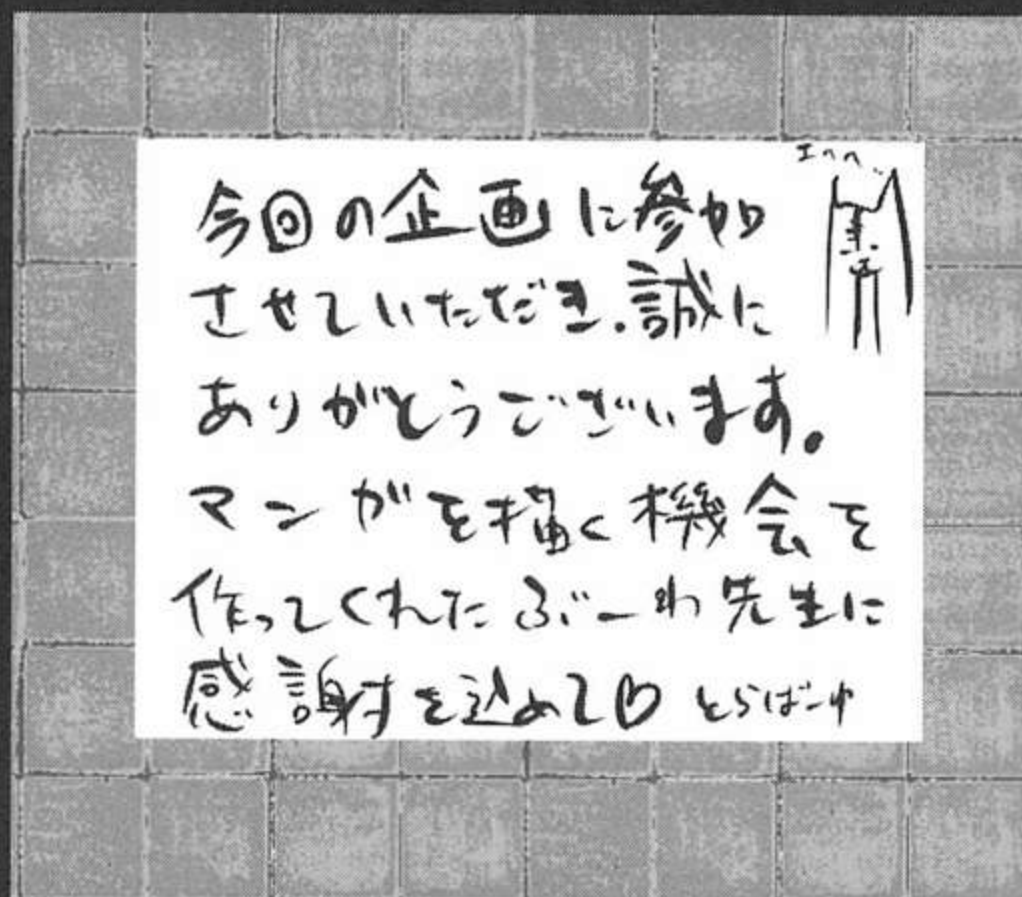 今回の企画に参加
させていただき、誠に
ありがとうございます。
マンガを描く機会を
作ってくれたぶーわ先生に
感謝を込めて♡ とらばーゆ
エヘヘ..